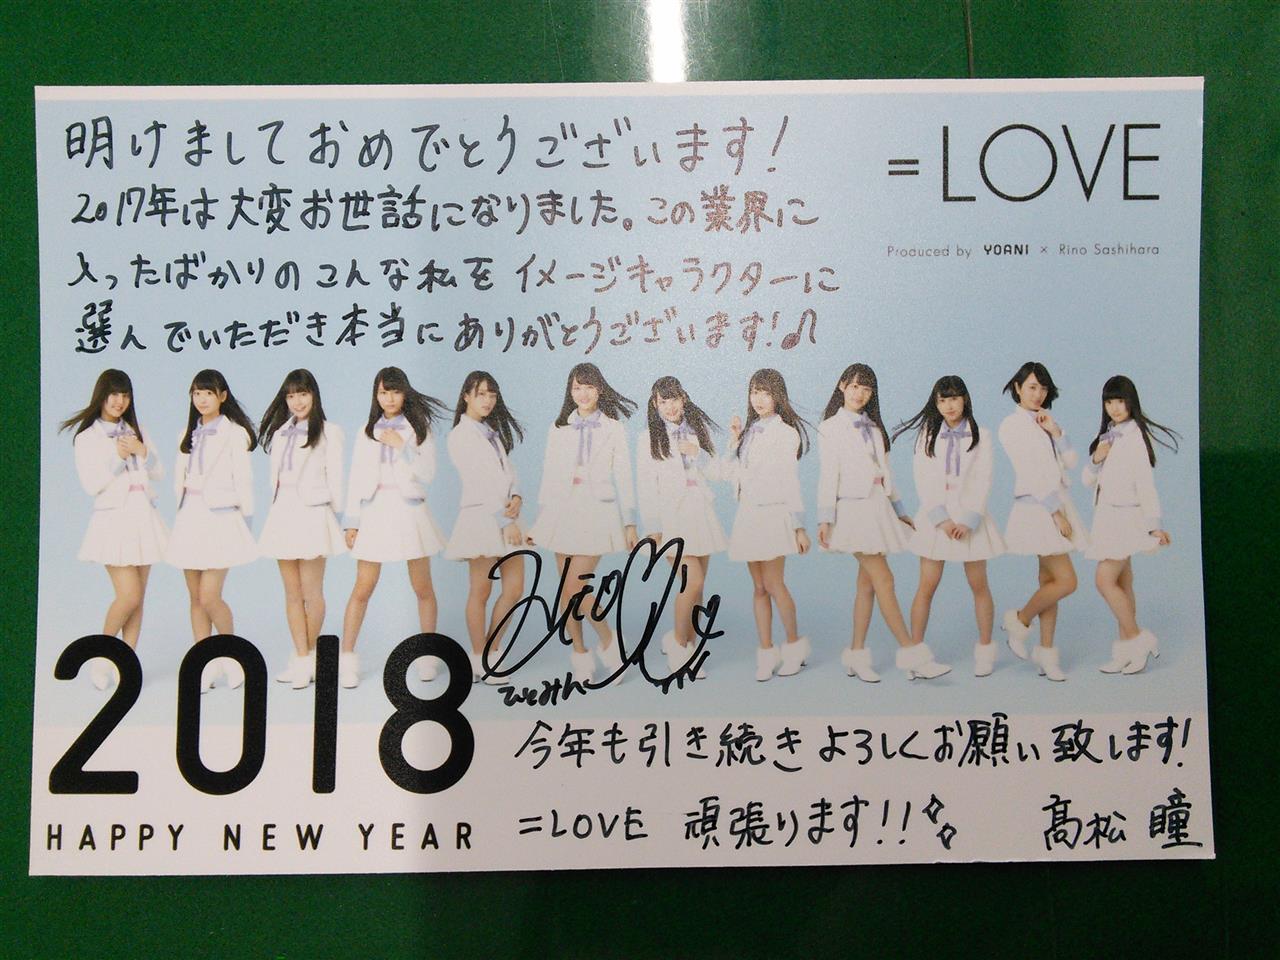 明けましておめでとうございます!
2017年は大変お世話になりました。この業界に
入ったばかりのこんな私をイメージキャラクターに
選んでいただき本当にありがとうございます!♫
=LOVE
Produced by YOANI × Rino Sashihara
2018
HAPPY NEW YEAR
今年も引き続きよろしくお願い致します!
=LOVE 頑張ります!!
髙松 瞳